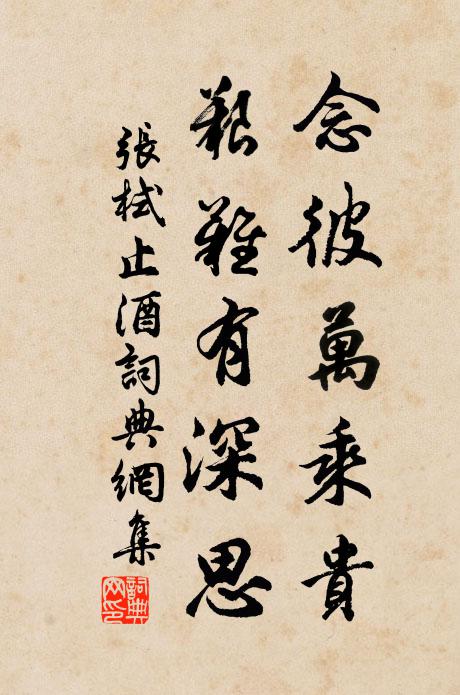 念彼萬乘貴
艱難有深思
張栻止酒詞典網集
詞典網印